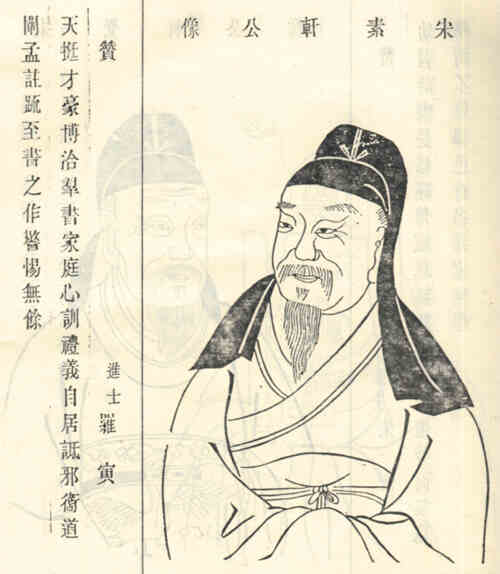 宋素軒公像
贊 進士羅寅
天挺才豪博洽羣書家庭心訓禮義自居詆邪衛道
闡孟註疏至書之作警惕無餘